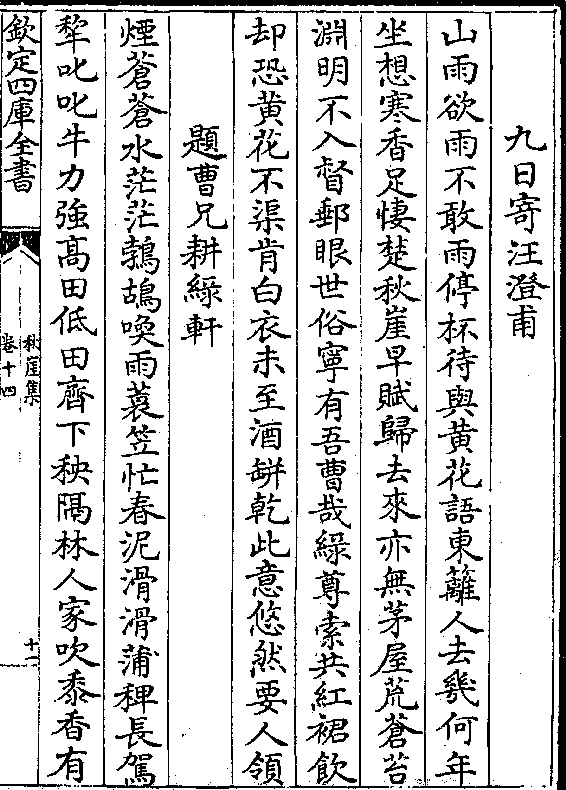 九日寄汪澄甫
山雨欲雨不敢雨停杯待與黄花語東籬人去㡬何年
坐想寒香足悽楚秋崖早賦歸去來亦無茅屋荒蒼苔
淵明不入督郵眼世俗寧有吾曹哉綠尊索共紅裙飲
却恐黄花不渠肯白衣未至酒缾乾此意悠然要人領
題曹兄耕綠軒
煙蒼蒼水茫茫鵓鴣喚雨蓑笠忙春泥滑滑蒲稗長駕
犂叱叱牛力強髙田低田齊下秧隔林人家吹黍香有
欽定四庫全書
秋崖集
卷十四
十一